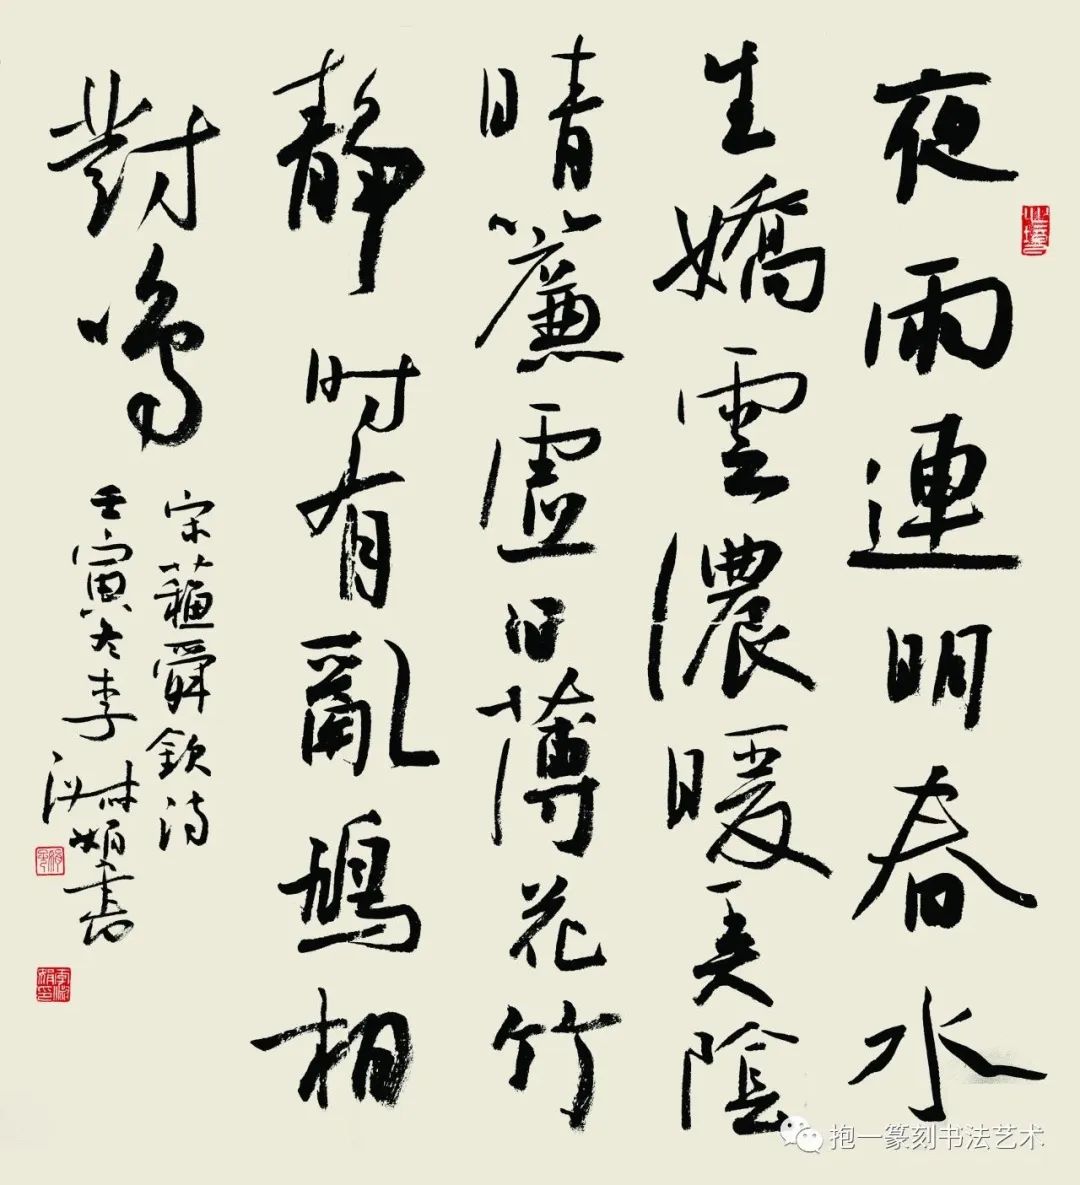 夜雨連明春水
生嬌雲濃暖弄陰
晴簾虛日薄花竹
靜时有亂鳩相
對鳴
宋蘇舜欽詩
壬寅冬李娟書
抱一篆刻书法艺术